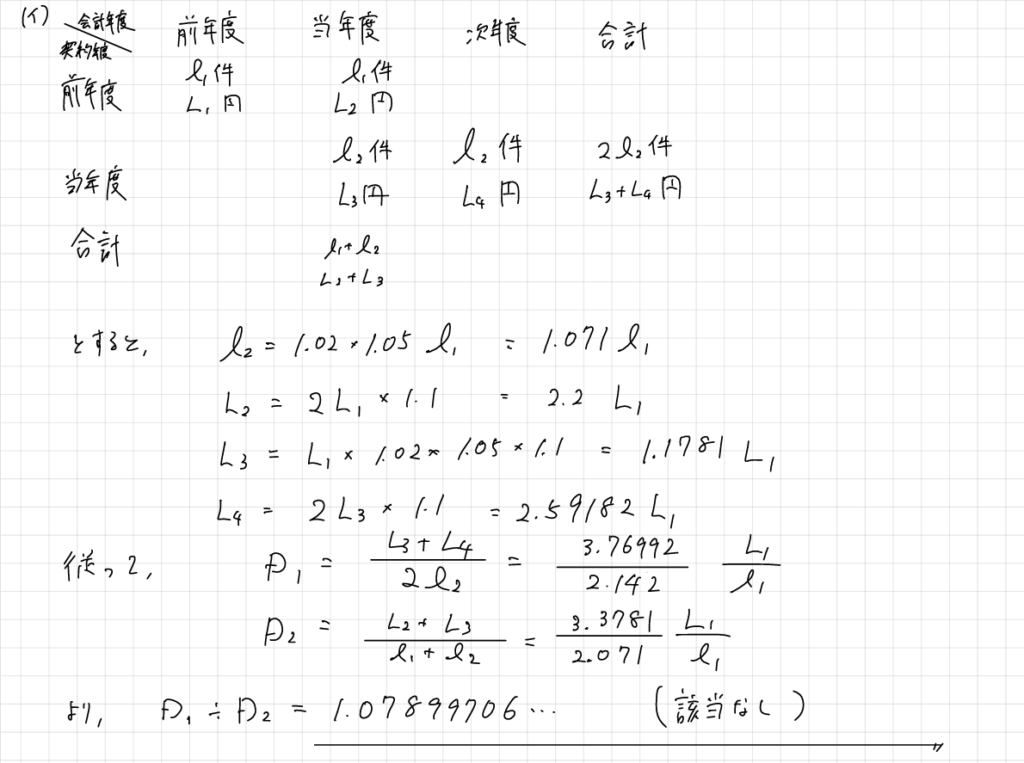 (イ) 会計年度 前年度 当年度 次年度 合計
契約年度
前年度 l₁件 l₁件
L₁円 L₂円
当年度 l₂件 l₂件 2l₂件
L₃円 L₄円 L₃+L₄円
合計 l₁+l₂
L₂+L₃
とすると, l₂ = 1.02×1.05 l₁ = 1.071 l₁
L₂ = 2L₁×1.1 = 2.2 L₁
L₃ = L₁×1.02×1.05×1.1 = 1.1781 L₁
L₄ = 2L₃×1.1 = 2.59182 L₁
従って, D₁ = (L₃+L₄)/(2l₂) = 3.76992/2.142 L₁/l₁
D₂ = (L₂+L₃)/(l₁+l₂) = 3.3781/2.071 L₁/l₁
より, D₁÷D₂ = 1.07899706… (該当なし)